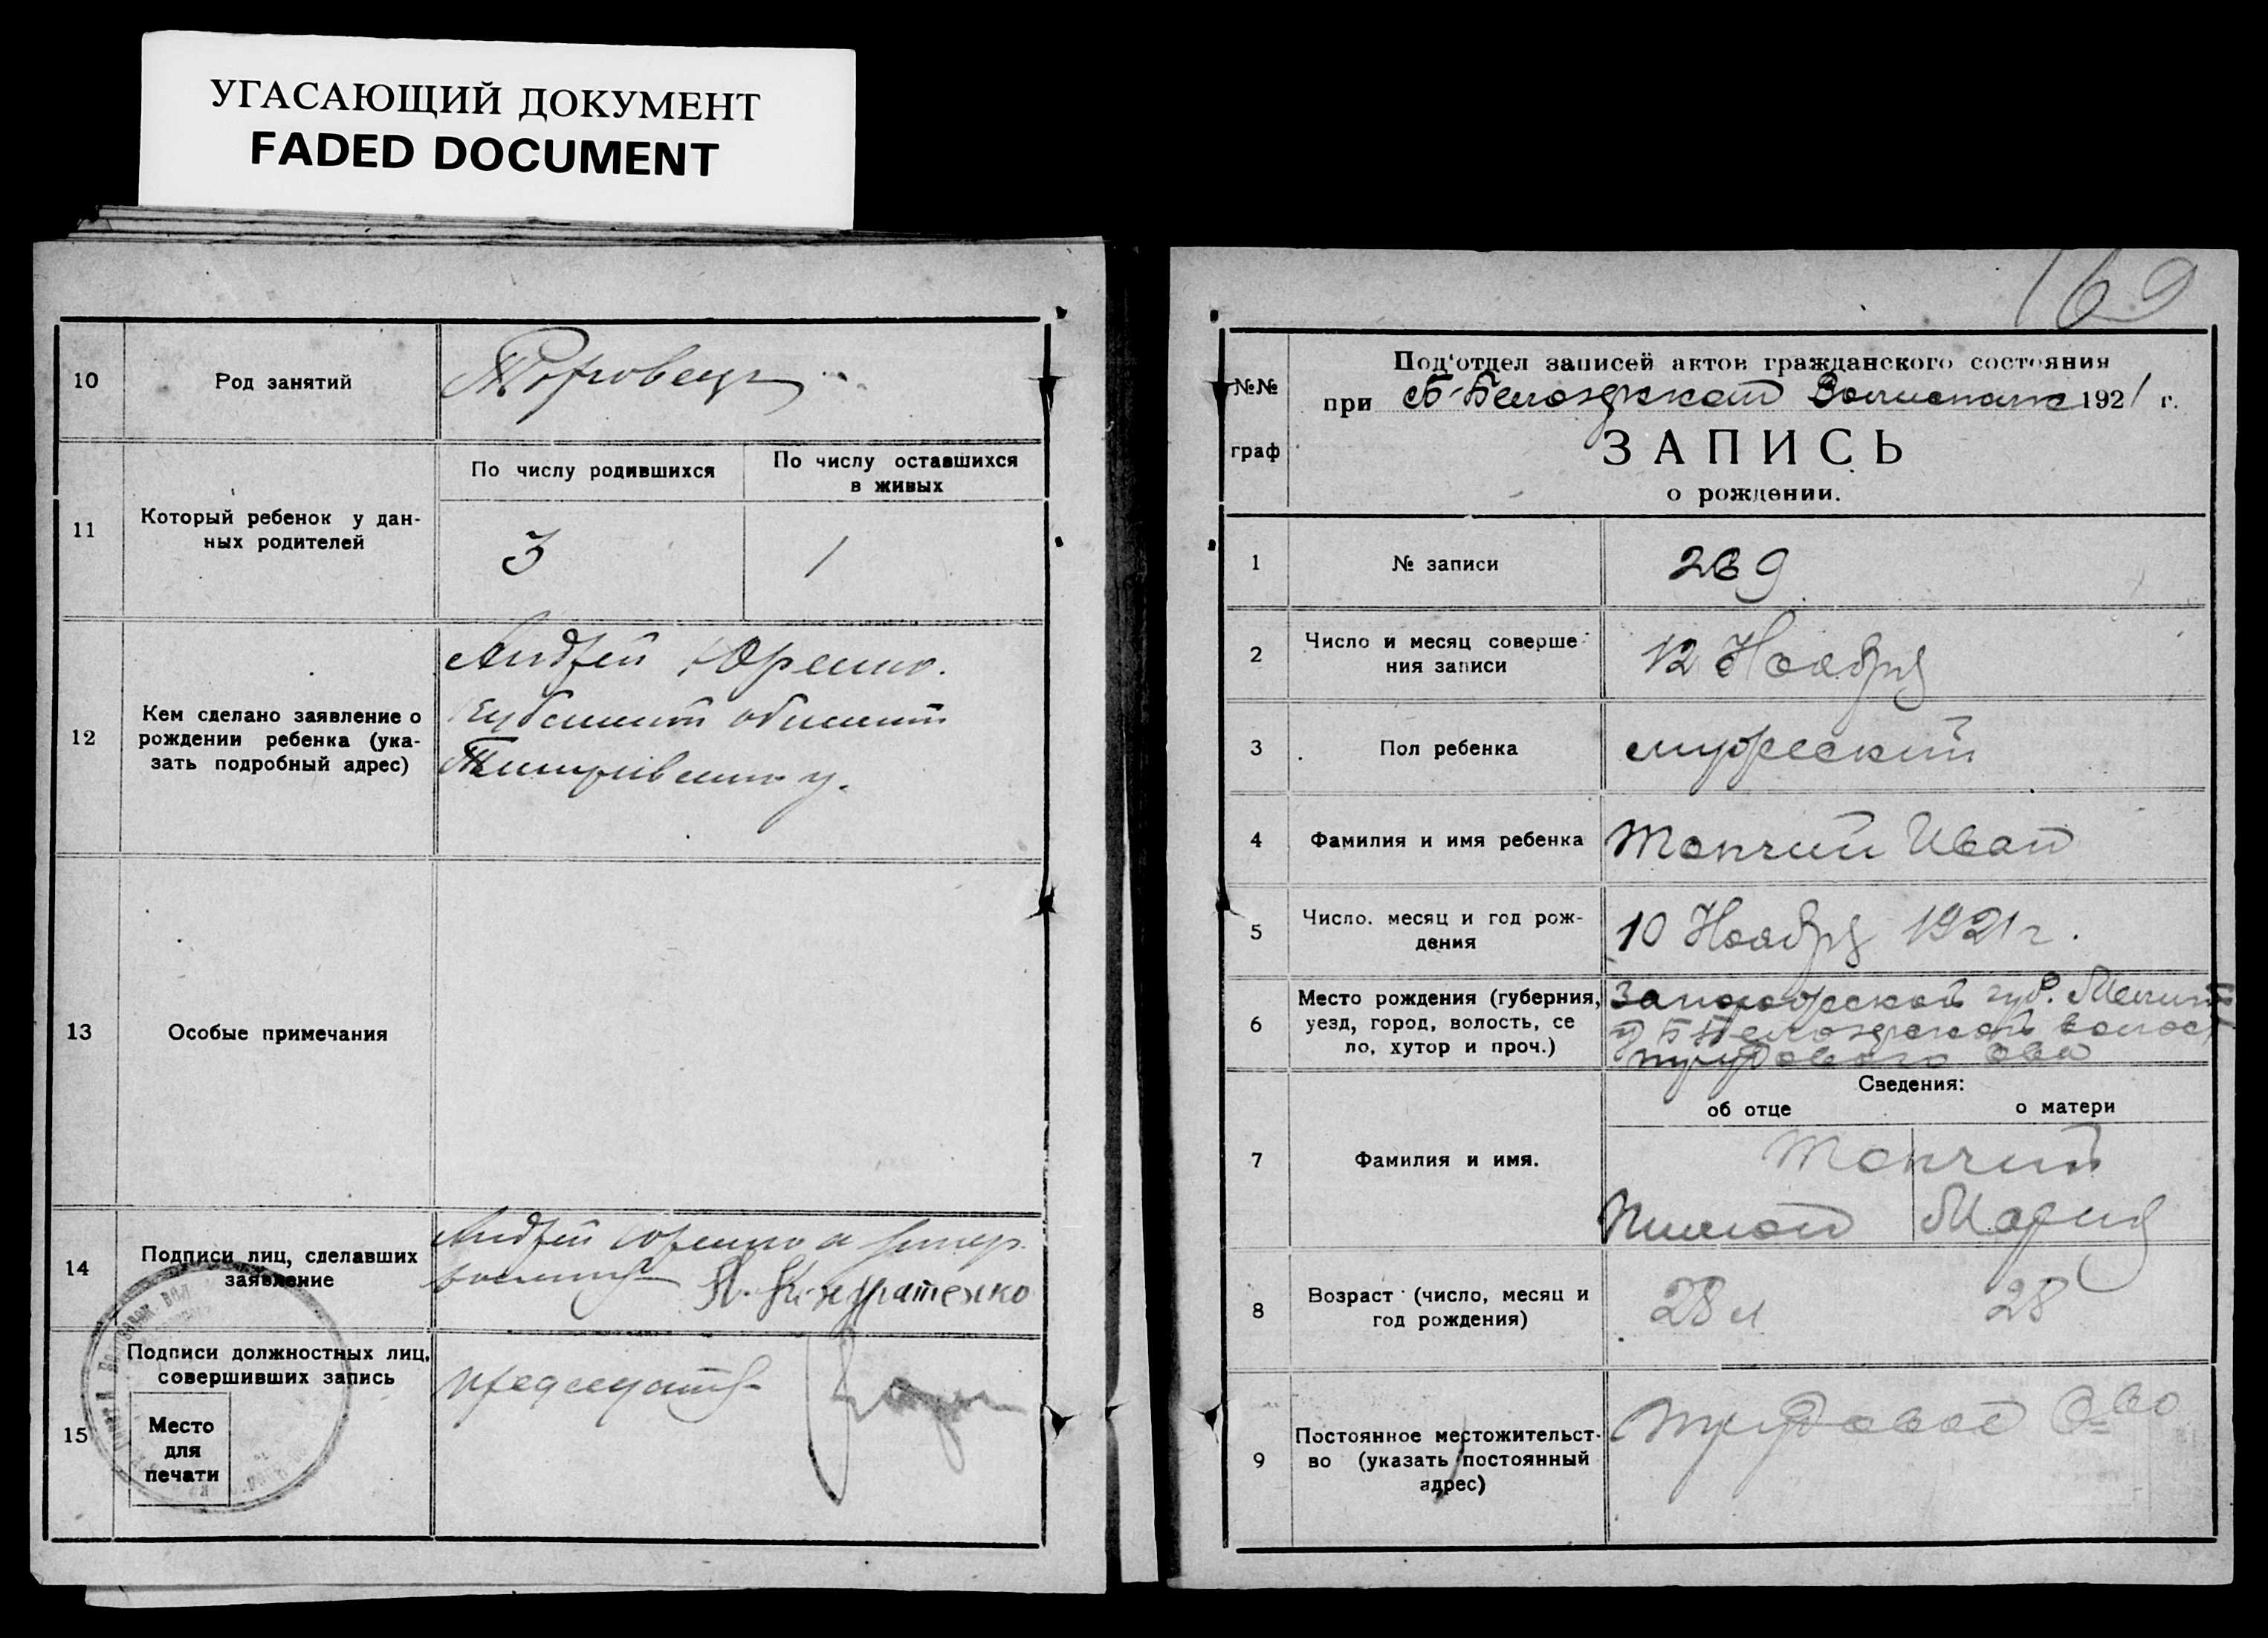 УГАСАЮЩИЙ ДОКУМЕНТ
FADED DOCUMENT
10
Род занятий
Торговец
11
Который ребенок у дан-
ных родителей
По числу родившихся
По числу оставшихся
в живых
3
1
12
Кем сделано заявление о
рождении ребенка (ука-
зать подробный адрес)
Андрей Юренко.
13
Особые примечания
14
Подписи лиц, сделавших
заявление
Андрей Юренко а
Кондратенко
15
Подписи должностных лиц,
совершивших запись
Место
для
печати
169
№№
граф
Под'отдел записей актов гражданского состояния
при Б-Белозерской Волисполк 1921 г.
ЗАПИСЬ
о рождении.
1
№ записи
269
2
Число и месяц соверше-
ния записи
12 Ноября
3
Пол ребенка
мужеский
4
Фамилия и имя ребенка
Топчий Иван
5
Число. месяц и год рож-
дения
10 Ноября 1921 г.
6
Место рождения (губерния,
уезд, город, волость, се
ло, хутор и проч.)
Запорожской губ. Мелит
у Б Белозерской волос
трудового ова
Сведения:
об отце
о матери
7
Фамилия и имя.
Топчий
Пимон Мария
8
Возраст (число, месяц и
год рождения)
28 л
28
9
Постоянное местожительст-
во (указать постоянный
адрес)
трудовое О-во